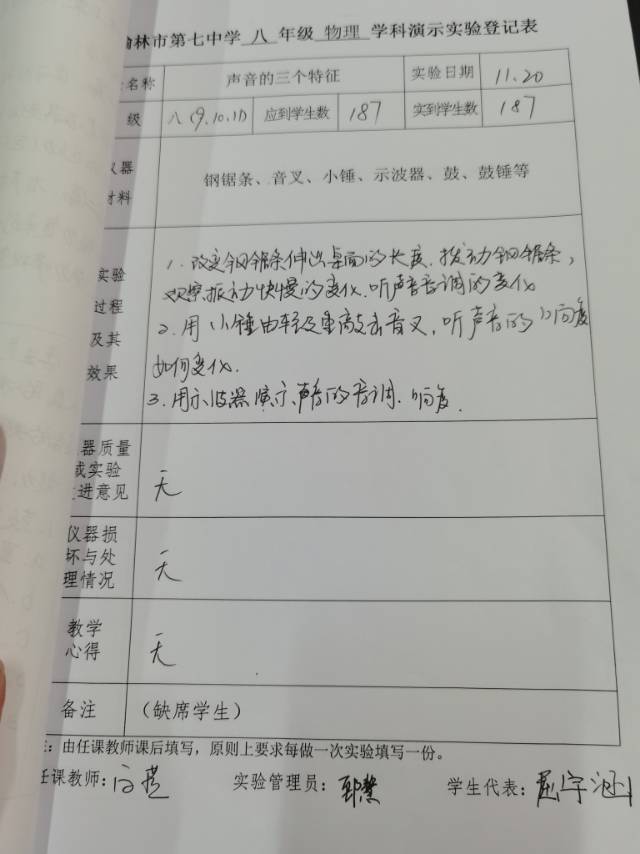 榆林市第七中学 八 年级 物理 学科演示实验登记表
名称 声音的三个特征 实验日期 11.20
级 八(9.10.11) 应到学生数 187 实到学生数 187
仪器
材料
钢锯条、音叉、小锤、示波器、鼓、鼓锤等
实验
过程
及其
效果
1. 改变钢锯条伸出桌面的长度.拨动钢锯条,
观察振动快慢的变化.听声音音调的变化
2.用小锤由轻及重敲击音叉,听声音的响度
如何变化.
3.用示波器演示声音的音调.响度.
器质量
或实验
进意见
无
仪器损
坏与处
理情况
无
教学
心得
无
备注 (缺席学生)
注:由任课教师课后填写,原则上要求每做一次实验填写一份。
任课教师: 实验管理员: 学生代表: